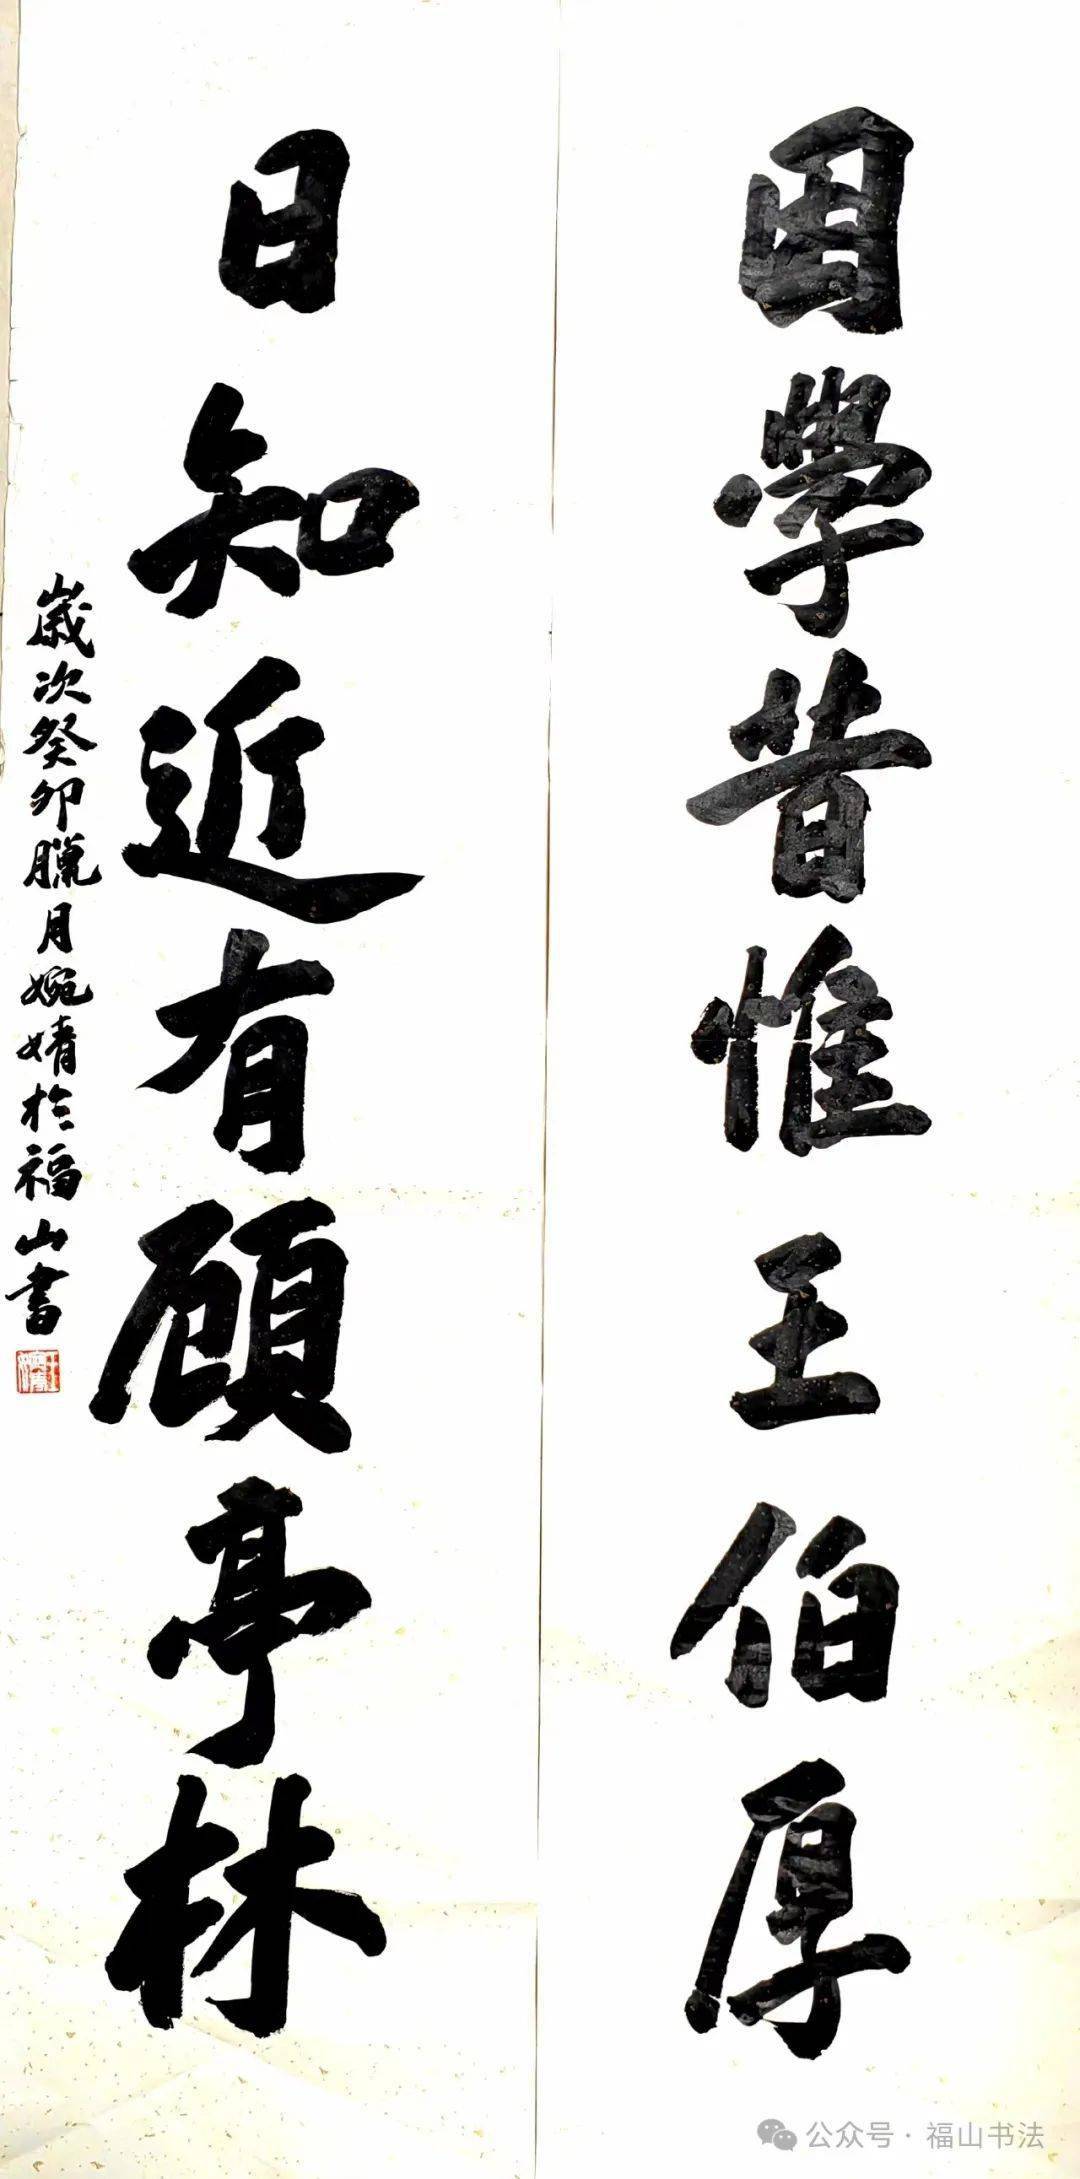 困學昔惟王伯厚
日知近有顧亭林
歲次癸卯臘月婉婧於福山書
公众号·福山书法